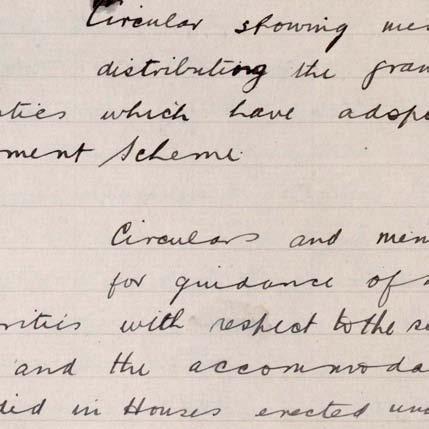 Circular showing me
distributing the gran
ties which have adop
ment Scheme
Circulars and mem
for guidance of
rities with respect to the s
and the accommoda
ded in Houses erected un